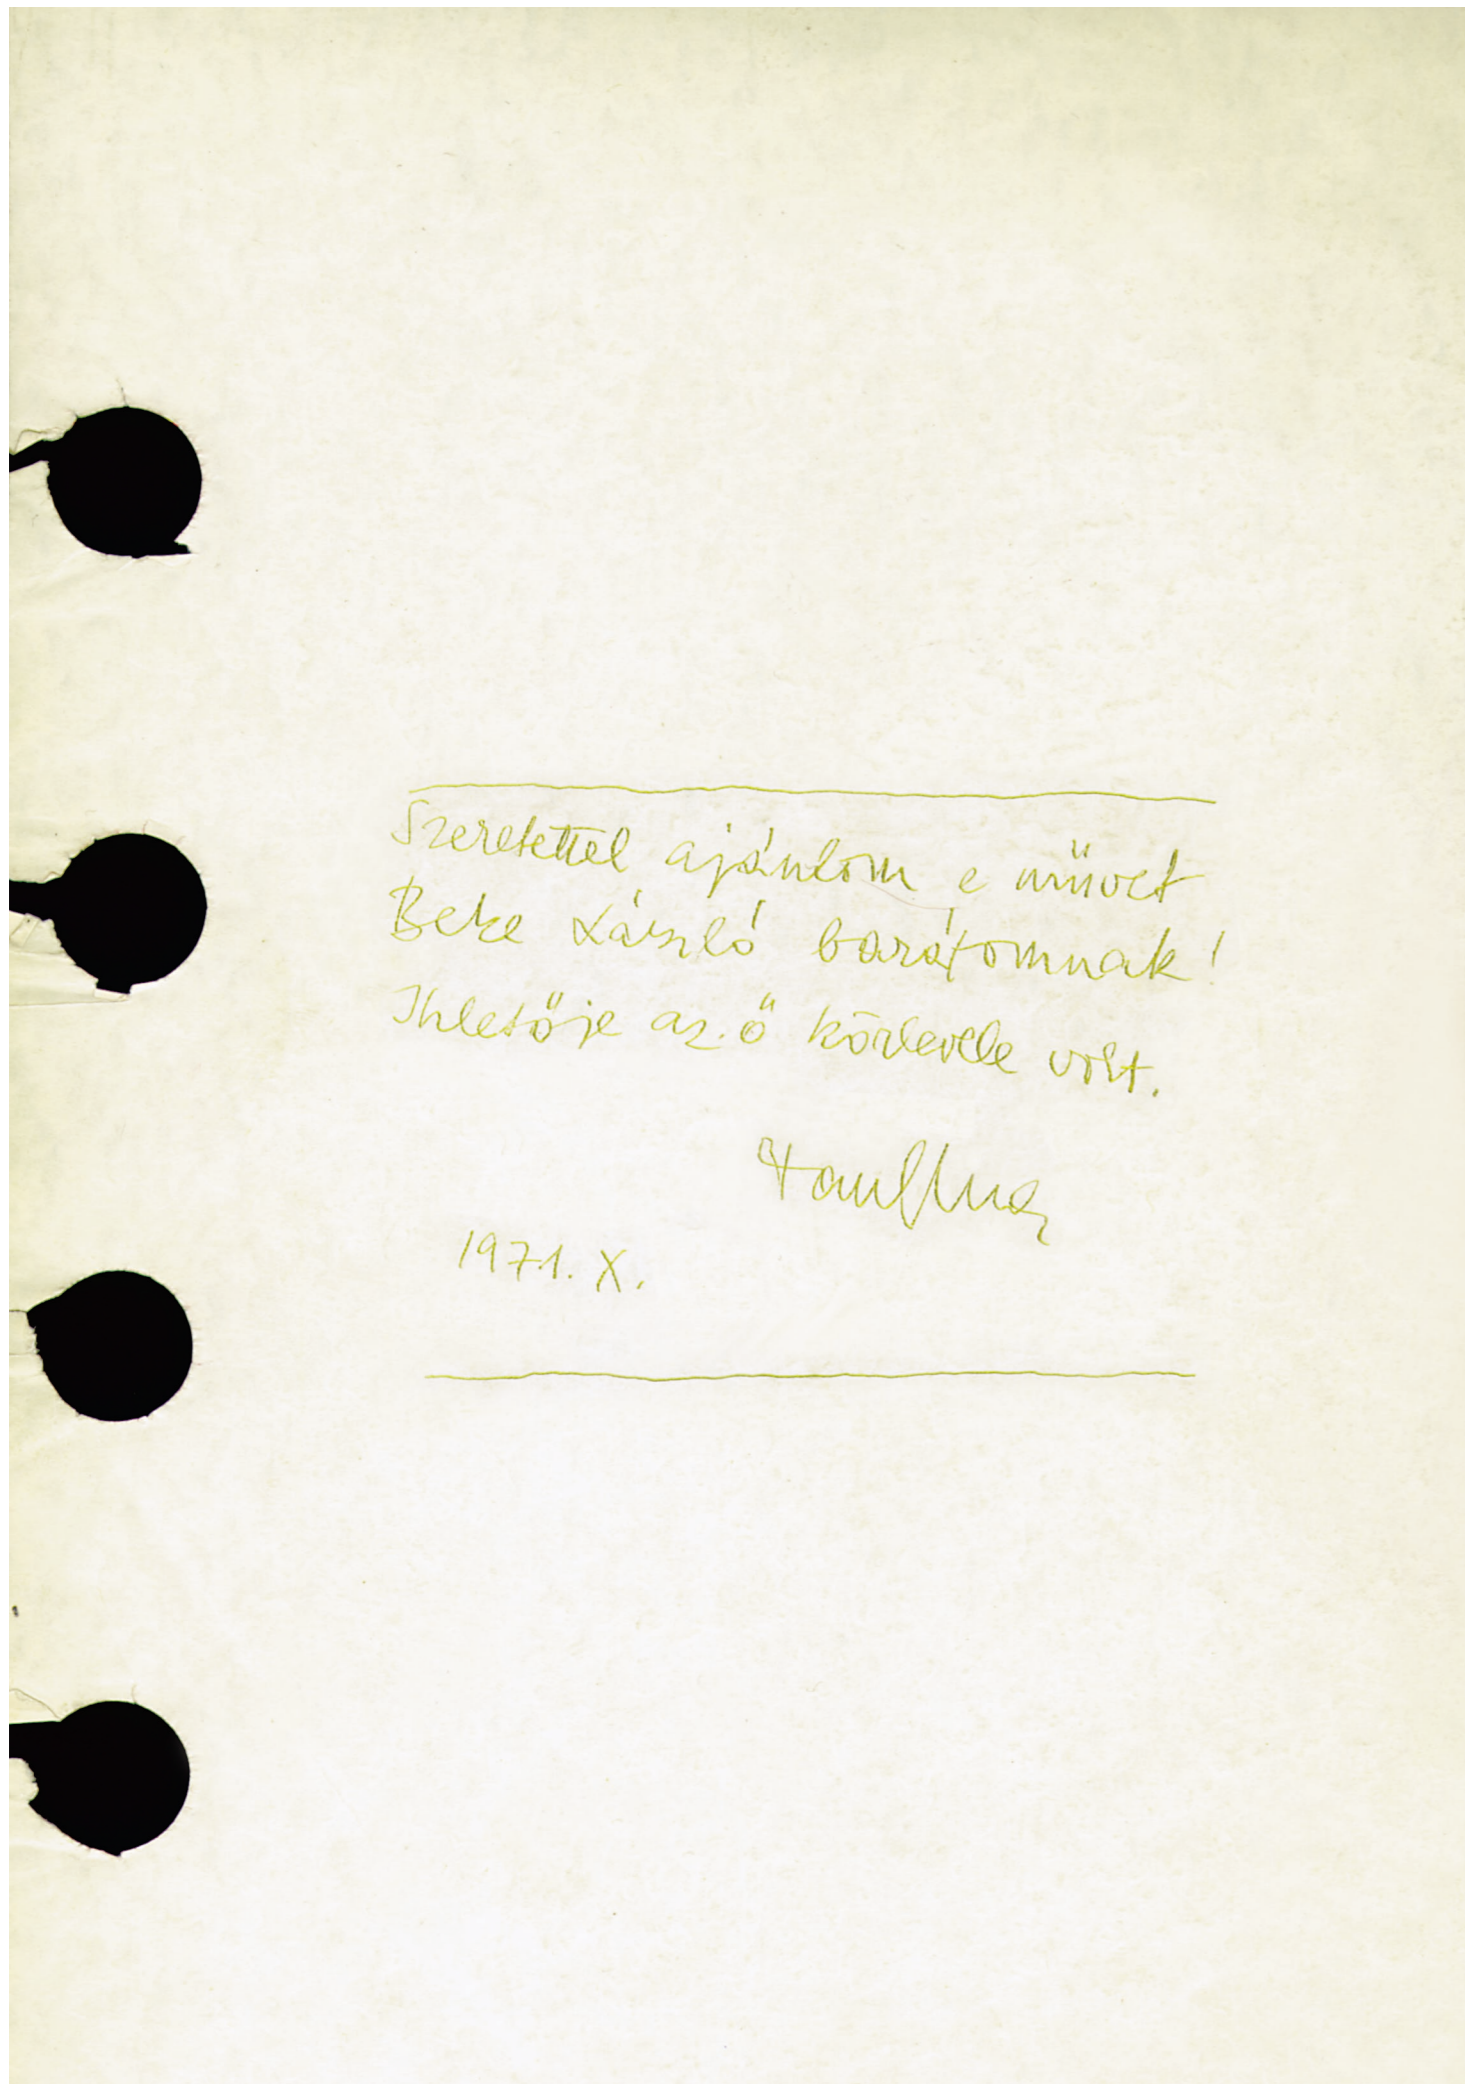 Szeretettel ajánlom e művet
Beke László barátomnak!
Ihletője az ő körlevele volt.
1971. X.